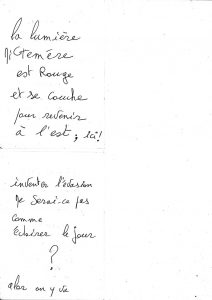 la lumière
est Rouge
et se couche
pour revenir
à l'est, ici!
inventer l'évasion
ne serai-ce pas
comme
Éclairer le jour
?
alor on y va